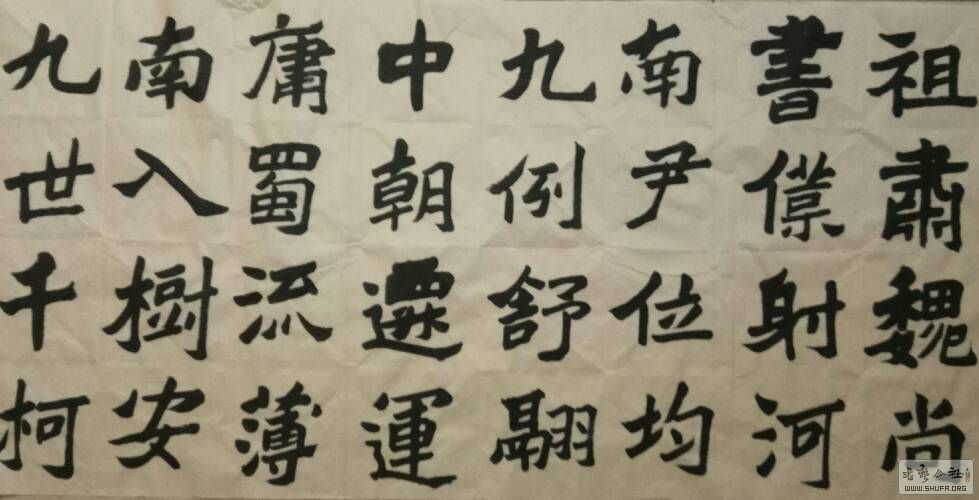 祖肅魏尚
書僕射河
南尹位均
九例舒翮
中朝遷運
庸蜀流薄
南入樹安
九世千柯
书艺公社
WWW.SHUFA.ORG